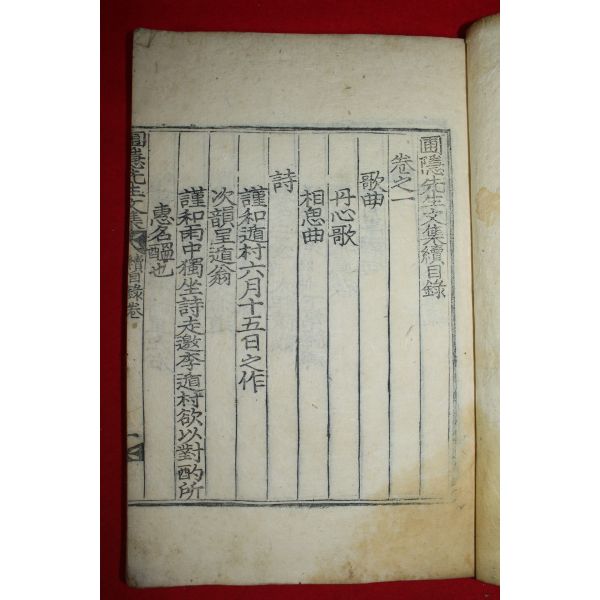 圃隱先生文集續目錄
卷之一
歌曲
丹心歌
相思曲
詩
謹和遁村六月十五日之作
次韻呈遁翁
謹和雨中獨坐詩走邀李遁村欲以對酌所
惠名醞也
圃隱先生文集 續目錄卷 一